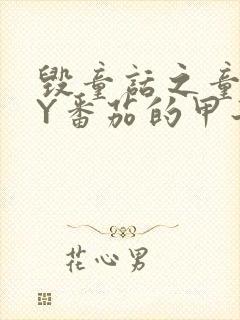 毁童话之童
Y番茄的甲
花心男